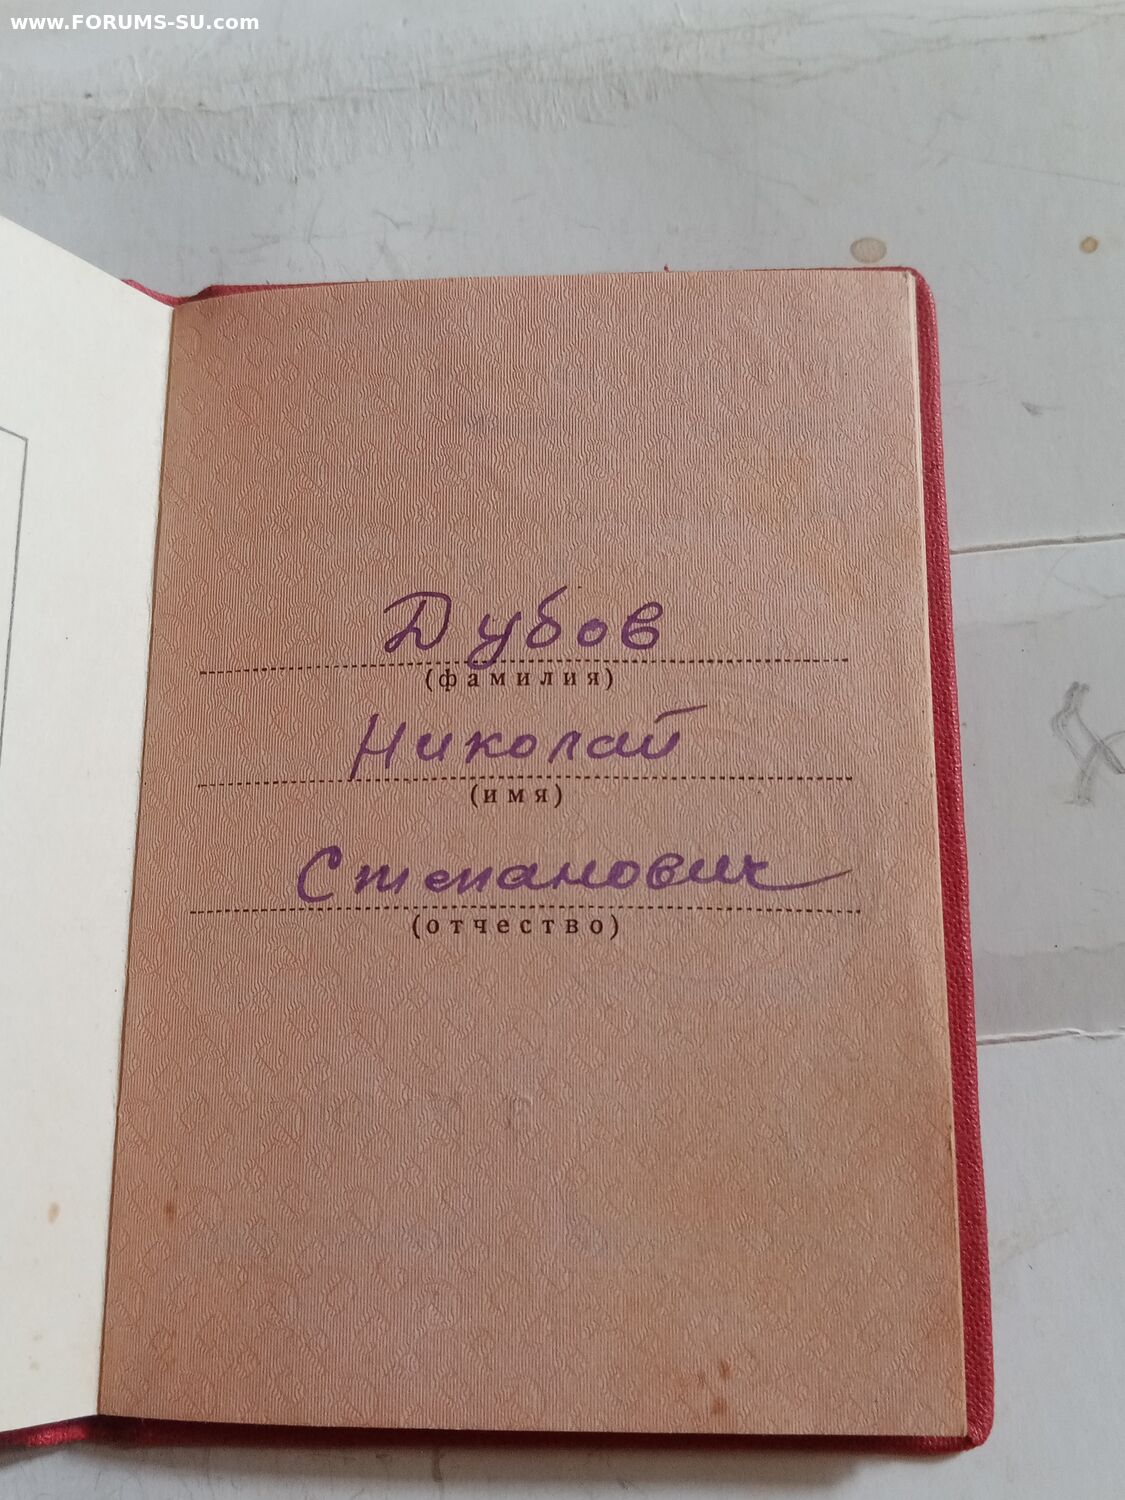 www.FORUMS-SU.com
Дубов
(фамилия)
Николай
(имя)
Степанович
(отчество)